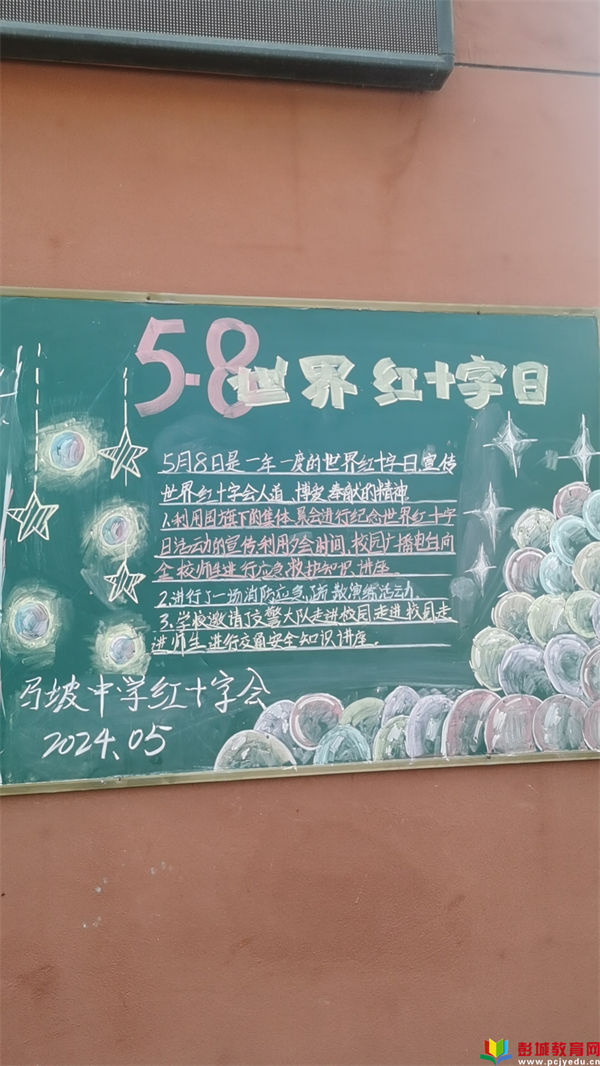 5.8世界红十字日
5月8日是一年一度的世界红十字日,宣传
世界红十字会人道、博爱、奉献的精神
1.利用国旗下的集体晨会进行纪念世界红十字
日活动的宣传利用夕会时间、校园广播电台向
全校师生进行应急救护知识讲座。
2.进行了一场消防应急疏散演练活动.
3.学校邀请了交警大队走进校园走进校园走
进师生进行交通安全知识讲座。
马坡中学红十字会
2024.05
彭城教育网
www.pcjyedu.cn